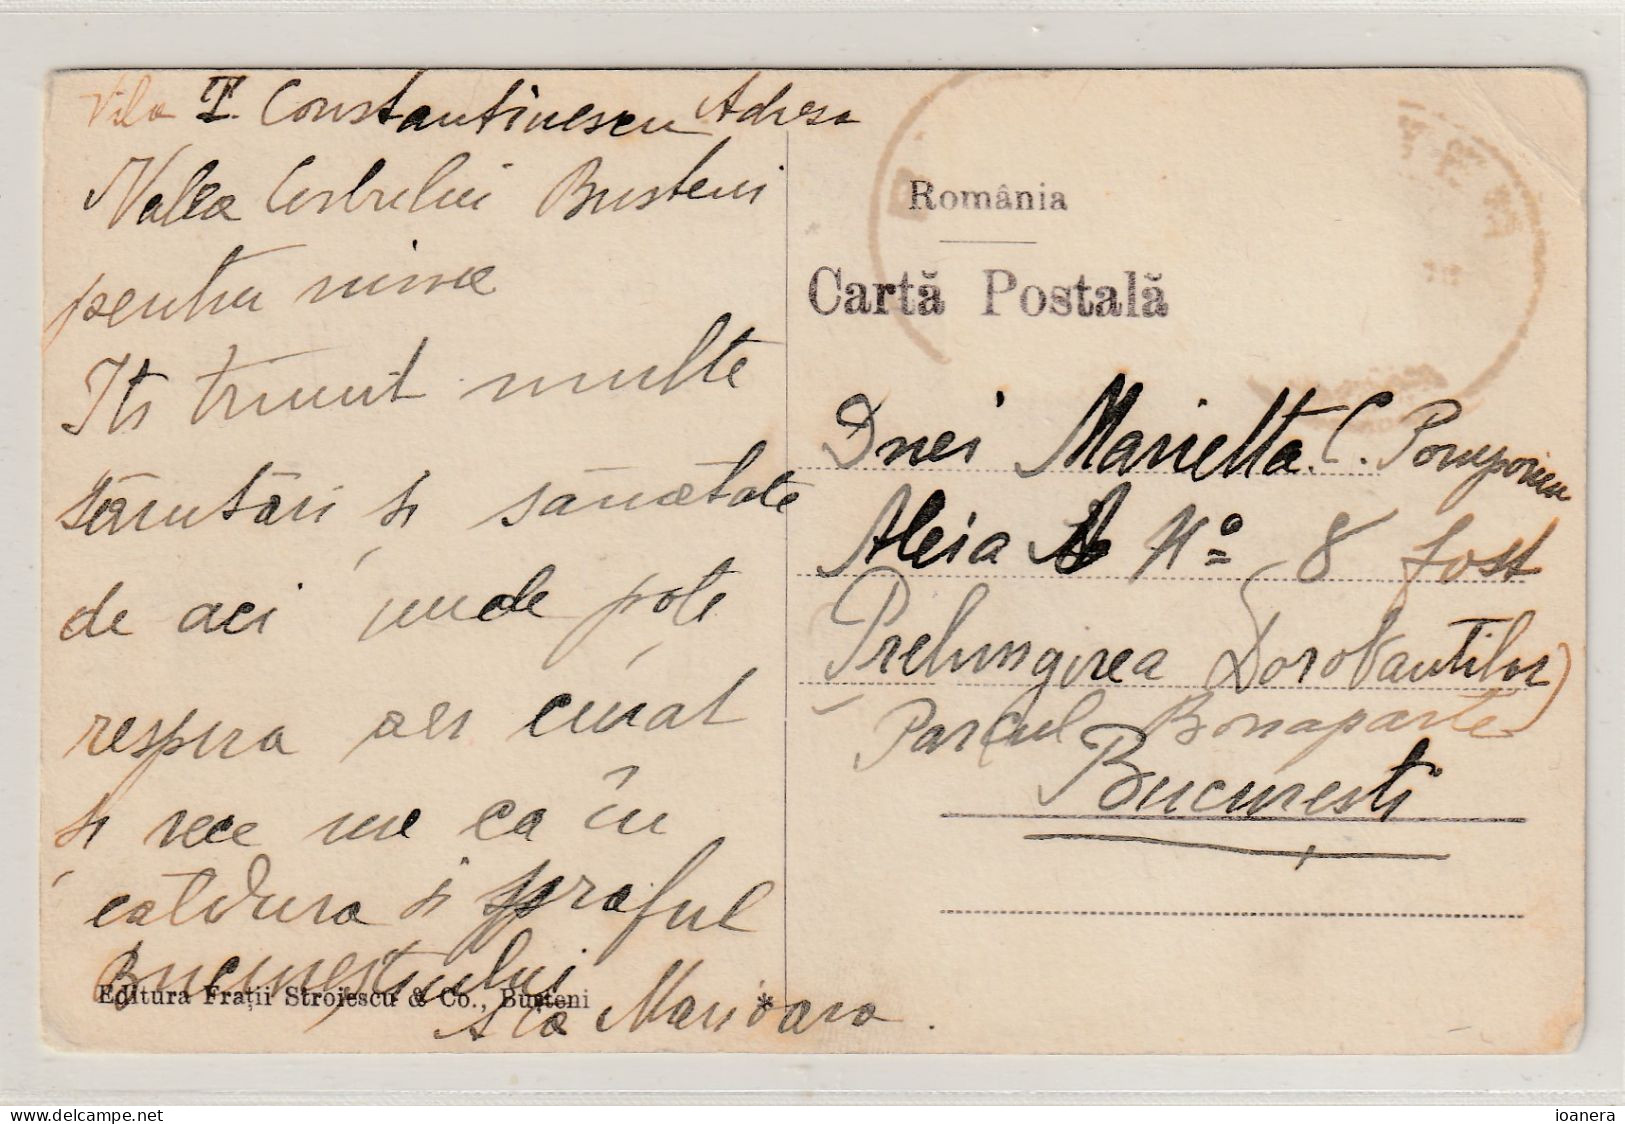 Vila I. Constantinescu Adresa
Valea Cerbului Busteni
pentru mine
Iti trimit multe
sărutări și sănătate
de aci unde poti
respira aer curat
și rece nu ca în
caldura și praful
Bucureștiului
Editura Frații Stroiescu & Co., Bușteni
A ta Marioara.
România
Cartă Postală
Dnei Marietta C. Pomponiu
Aleia A No 8 fost
Prelungirea Dorobantilor)
Parcul Bonaparte
București
delcampe.net
ioanera